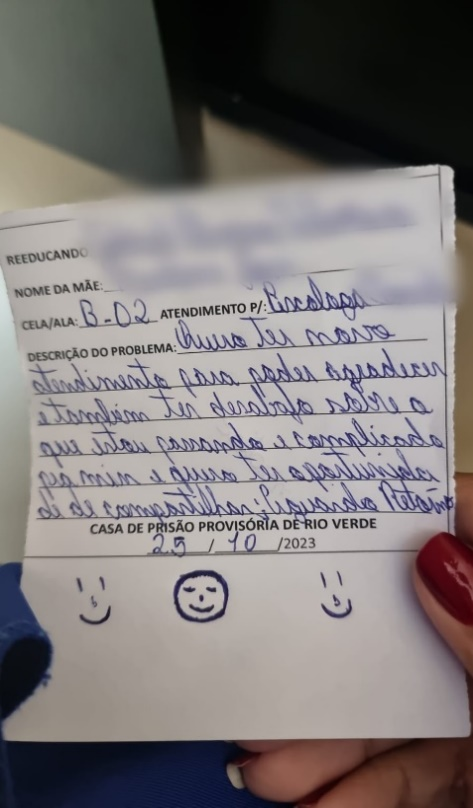 REEDUCANDO
NOME DA MÃE:
CELA/ALA: B-02 ATENDIMENTO P/: Psicologa
DESCRIÇÃO DO PROBLEMA: Quero ter novo
atendimento para poder agradecer
e também ter desabafo sobre o
que estou passando e complicado
pra mim e quero ter oportunida
de de compartilhar, aguardo Retorno
CASA DE PRISÃO PROVISÓRIA DE RIO VERDE
25 / 10 /2023